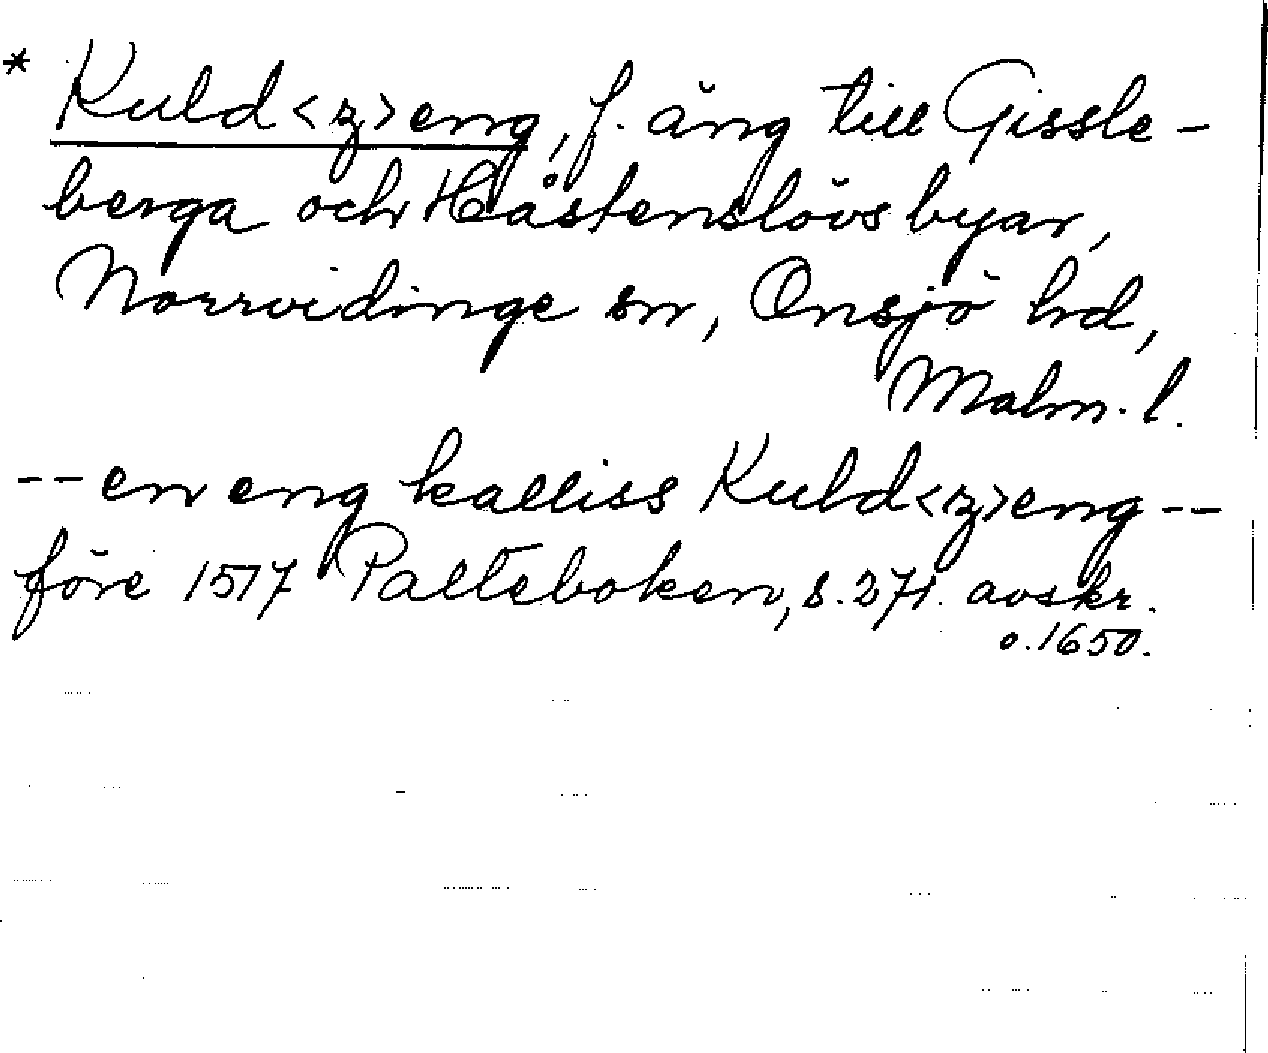 * Kuld<z>eng, f. äng till Gissle-
berga och Håstenslövs byar,
Norrvidinge sn, Onsjö hd,
Malm. l.
-- en eng kalliss Kuld<z>eng --
före 1517 Palteboken, s. 271. avskr.
o. 1650.